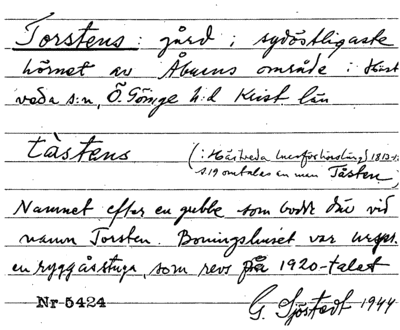 Torstens : gård i sydöstligaste
hörnet av Åbuens område i Häst
veda s:n, Ö. Göinge h:d Krist. län
tàstens (: Hästveda husförhörslängd 1813-
s.19 omtalas en man Tästen)
Namnet efter en gubbe som bodde där vid
namn Torsten. Boningshuset var urspr.
en ryggåsstuga, som revs på 1920-talet
Nr 5424 G. Sjöstedt 1944